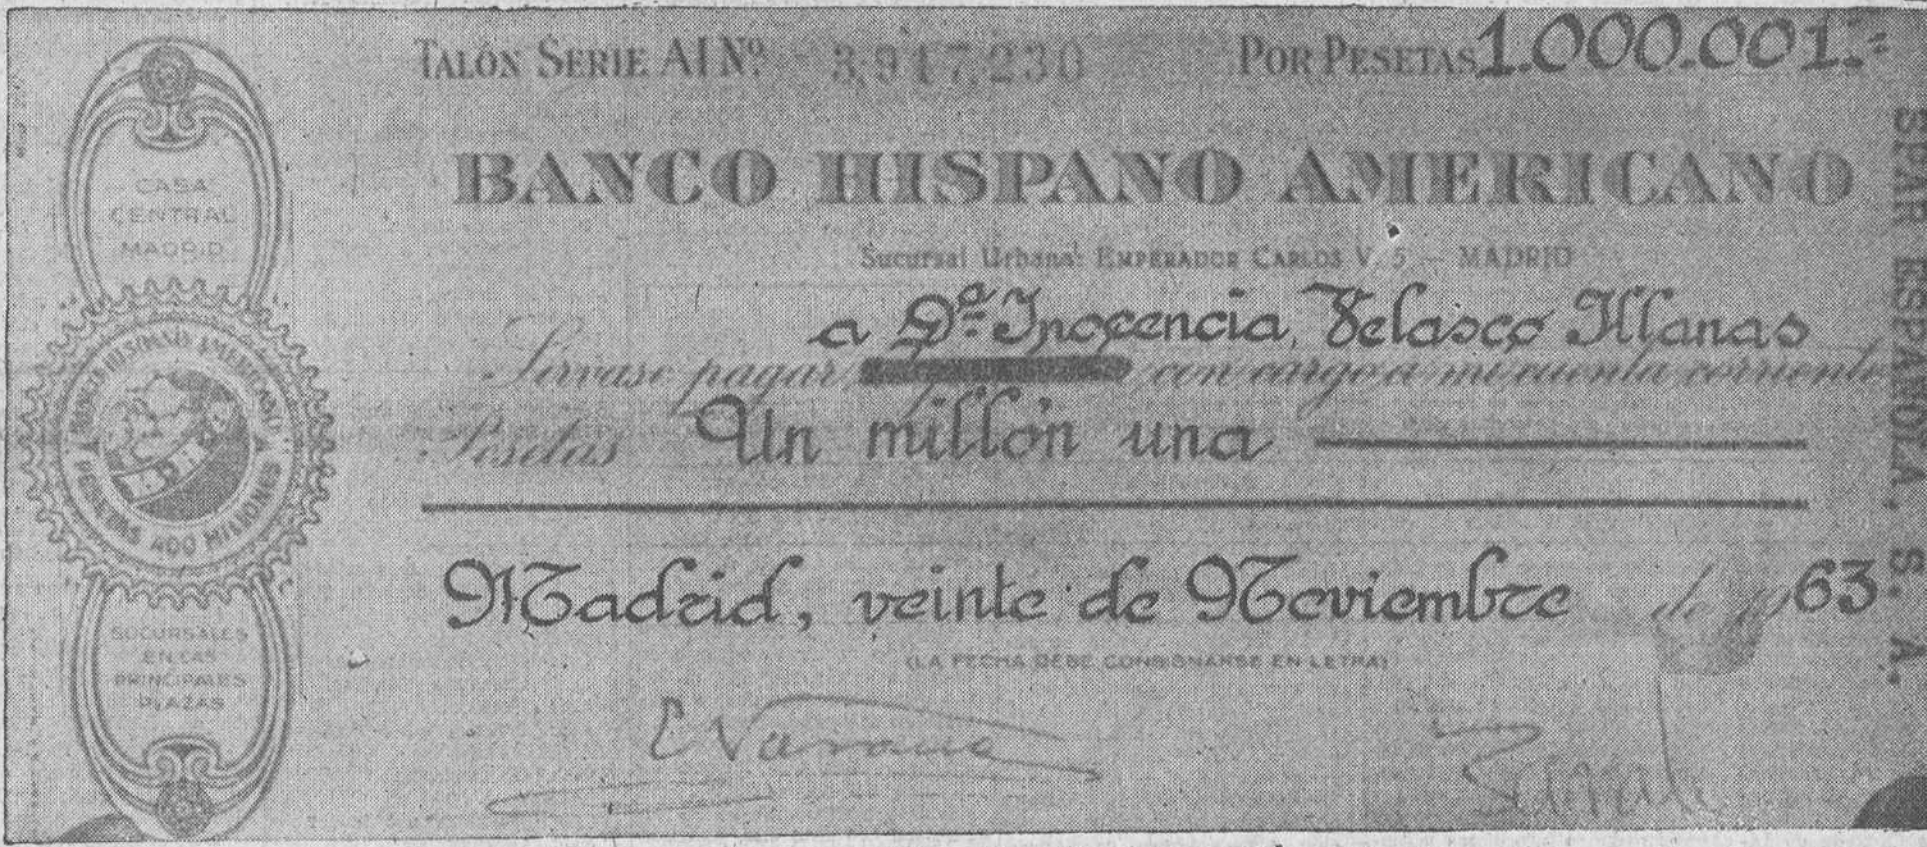 TALÓN SERIE AI Nº 3,917,230 POR PESETAS 1.000.001.=
BANCO HISPANO AMERICANO
Sucursal Urbana: EMPERADOR CARLOS V, 5 — MADRID
a Dª Inocencia, Velasco Illanas
Sírvase pagar con cargo a mi cuenta corriente
Pesetas Un millón una
Madrid, veinte de Noviembre de 1963
(LA FECHA DEBE CONSIGNARSE EN LETRA)
CASA
CENTRAL
MADRID
BANCO HISPANO AMERICANO
PESETAS 400 MILLONES
SUCURSALES
EN LAS
PRINCIPALES
PLAZAS
SPAR ESPAÑOLA, S. A.